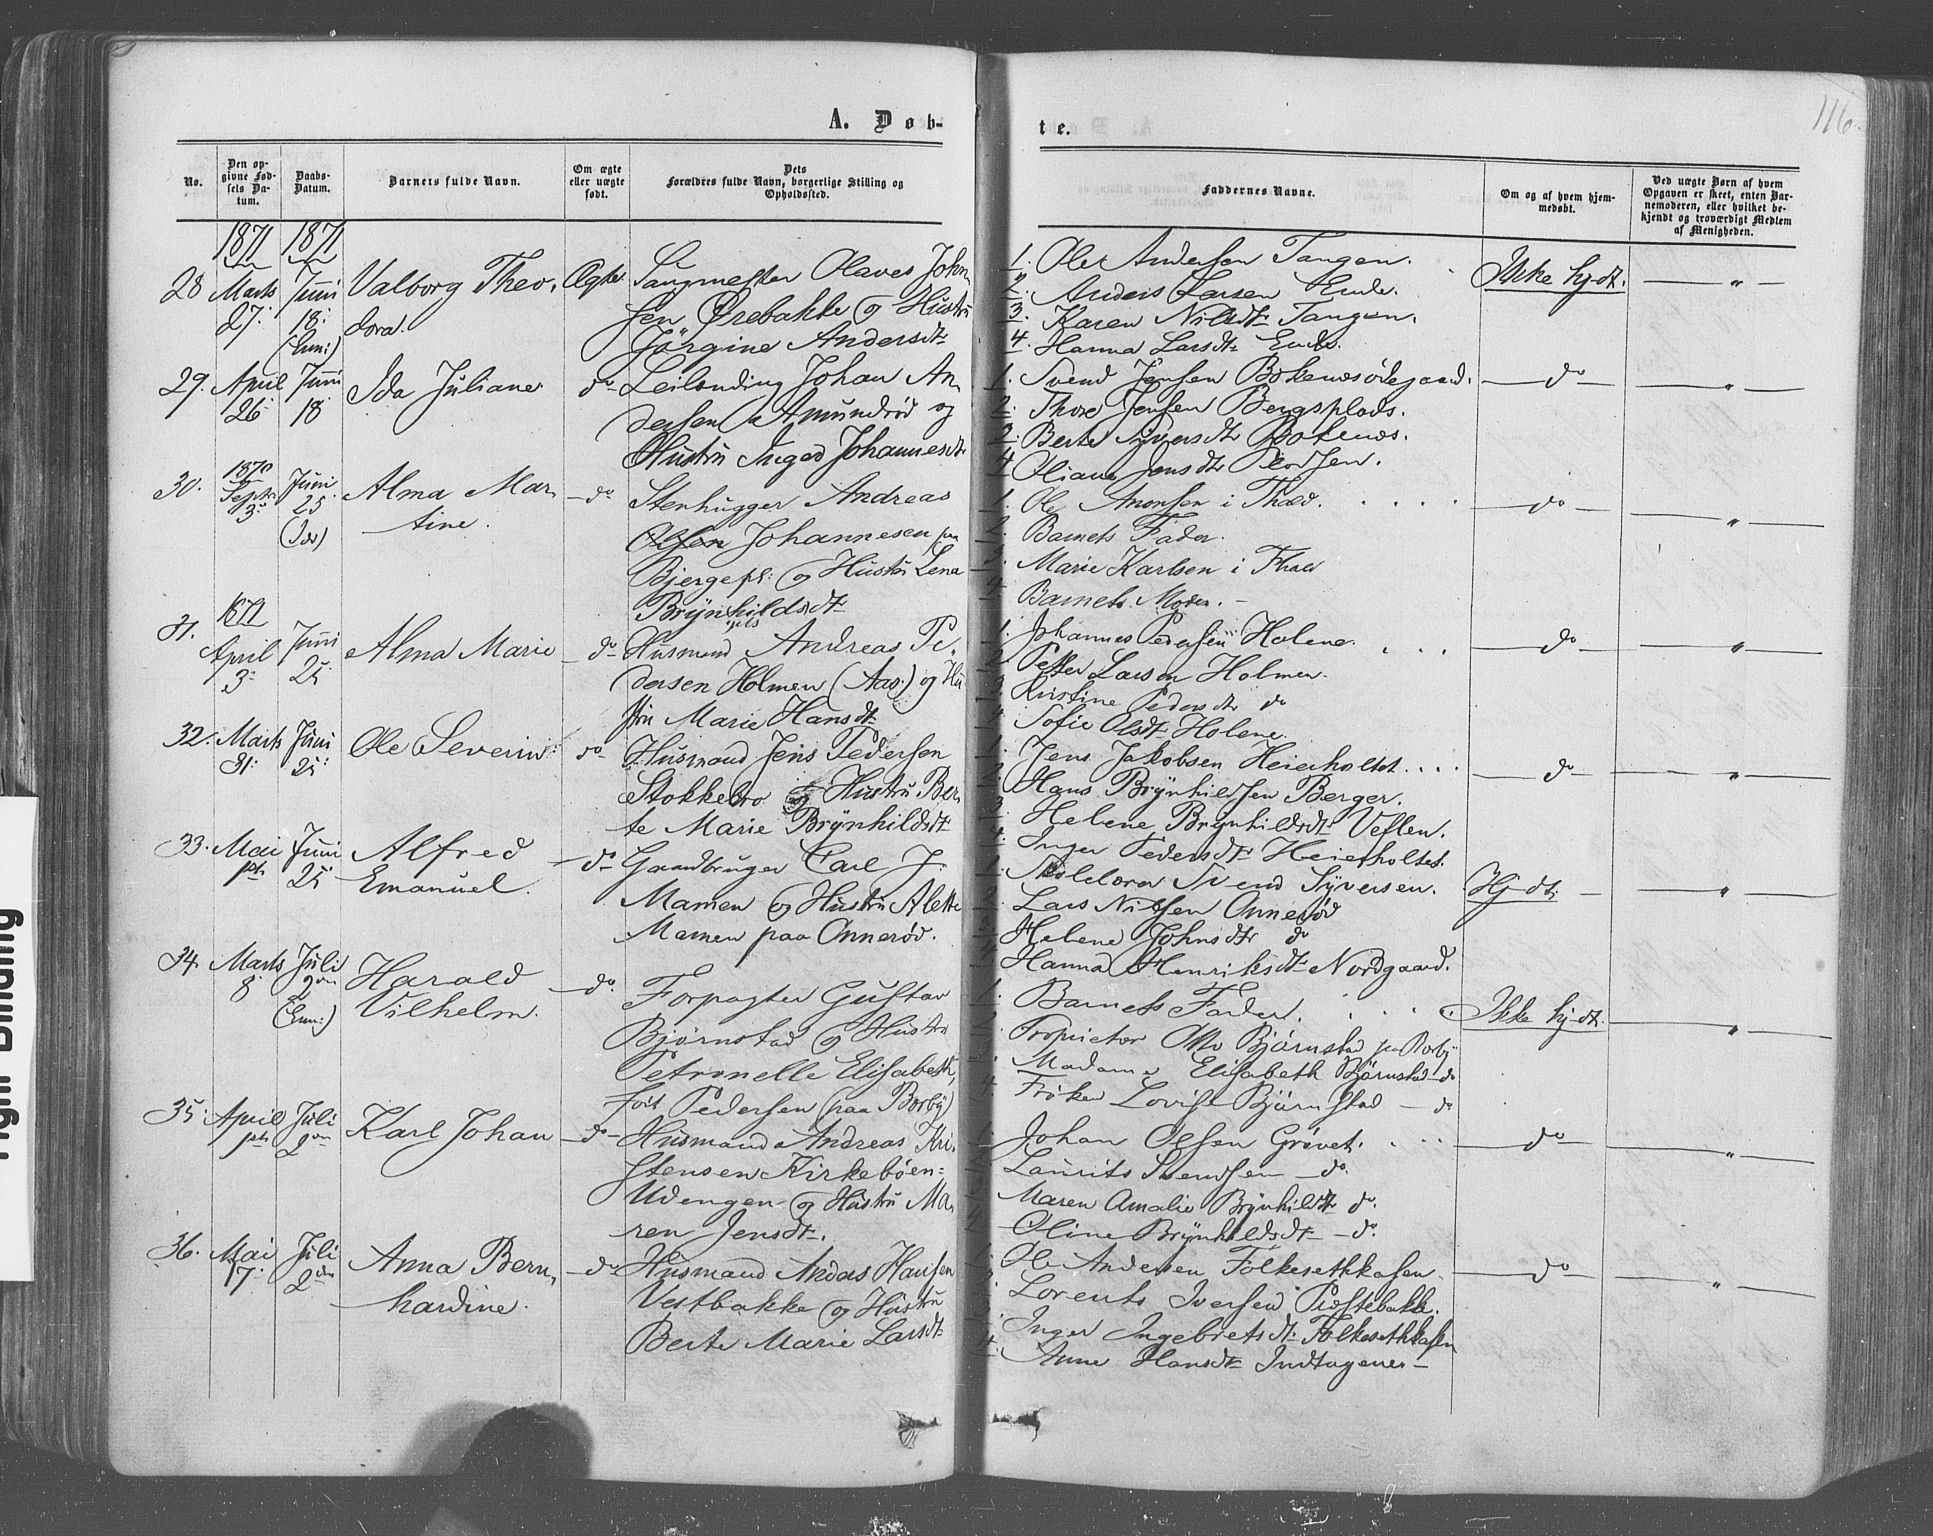 116
A. Døb-
te.
No.
Den op-
givne Fød-
sels Da-
tum.
Daabs-
Datum.
Barnets fulde Navn.
Om ægte
eller uægte
født.
Dets
Forældres fulde Navn, borgerlige Stilling og
Opholdssted.
Faddernes Navne.
Om og af hvem hjem-
medøbt.
Ved uægte Børn af hvem
Opgaven er skeet, enten Bar-
nemoderen, eller hvilket be-
kjendt og troværdigt Medlem
af Menigheden.
1871 1871
28 Marts 27. Juni 18. (Enn:)
Valborg Theo-
dora.
Ægte
Sangmester Olaves John-
sen Ørebakke og Hustru
Jörgine Andersdtr
1. Ole Andersen Tangen.
2. Anders Larsen Ende.
3. Karen Nilsdtr Tangen.
4. Hanna Larsdtr Ende.
Ikke hj-dt. — " —
29. April 26 Juni 18
Ida Juliane
do
Leilending Johan An-
dersen Amundrød og
Hustru Inged Johannesdtr
1. Svend Jensen Bokenæsødegaard.
2. Thore Jensen Bergsplads.
3. Berte Syversdtr Bokenæs.
4. Oliane Jensdtr
do — " —
30. 1870 Septr 3. Juni 25 (Ids)
Alma Mar-
tine.
do
Stenhugger Andreas
Olsen Johannesen paa
Bjergepl: og Hustru Lena
Brynhildsdtr
1. Ole Amonsen i Thæd.
2. Barnets Fader.
3. Marie Karlsen i Thæd
4. Barnets Moder. -
do — " —
1871
31. April 3. Juni 25
Alma Marie
do
Husmand Andreas Pe-
dersen Holmen (Aas) og Hu-
stru Marie Hansdtr
1. Johannes Pedersen Holene.
2. Petter Larsen Holmen.
3. Kristine Pedersdtr do
4. Sofie Olsdtr Holene.
do — " —
32. Marts 31. Juni 25.
Ole Severin
do
Husmand Jens Pedersen
Stokkebro og Hustru Ber-
te Marie Brynhildsdtr
1. Jens Jakobsen Heierholtet.
2. Hans Brynhildsen Berger.
3. Helene Brynhildsdtr Veflen.
4. Inger Pedersdtr Heierholtet.
do — " —
33. Mai 1ste Juni 25
Alfred
Emanuel.
do
Gaardbruger Carl J.
Mamen og Hustru Alette
Mamen paa Onnerød.
1. Skolelærer Svend Syversen.
Lars Nilsen Onnerød
Helene Johnsdtr do
Hanna Henriksdtr Nordgaard.
Hj-dt. — " —
34. Marts 8. Juli 2den (Enn:)
Harald
Vilhelm.
do.
Forpagter Gustav
Bjørnstad og Hustru
Petronelle Elisabeth,
født Pedersen (paa Borby)
1. Barnets Fader.
Proprietær Otto Bjørnstad paa Borby
Madame Elisabeth Bjørnstad do
4. Frøken Lovise Bjørnstad — do
Ikke hj-dt. — " —
35. April 1ste Juli 2den
Karl Johan
do
Husmand Andreas Kri-
stensen Kirkebøen-
Udengen og Hustru Ma-
ren Jensdtr.
Johan Olsen Grøvet.
Laurits Svendsen — do.
Maren Amalie Brynhildsdtr do.
Oline Brynhildsdtr — do.
do — " —
36. Mai 17. Juli 2den
Anna Bern-
hardine.
do
Husmand Anders Hansen
Vestbakke og Hustru
Berte Marie Larsdtr
Ole Andersen Folkesethkasen
Lorents Iversen Præstebakke.
Inger Ingebretsdtr Folkesethkasen
4. Anne Hansdtr Indtagenes —
do — " —